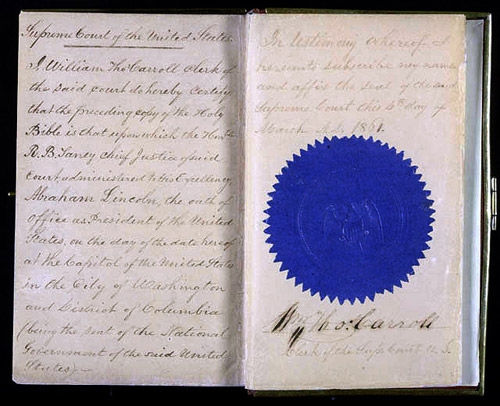 Supreme Court of the United States.
I, William Tho. Carroll clerk of
the said court do hereby certify
that the preceding copy of the Holy
Bible is that upon which the Honble.
R. B. Taney chief Justice of said
court, administered to His Excellency
Abraham Lincoln, the oath of
office as President of the United
States, on the day of the date hereof
at the Capitol of the United States
in the City of Washington
and District of Columbia
(being the seat of the National
Government of the said United
States).—
In testimony whereof I
hereunto subscribe my name
and affix the seal of the said
Supreme Court this 4th day of
March A.D. 1861.
Wm. Tho. Carroll
Clerk of the Sup. Court U. S.